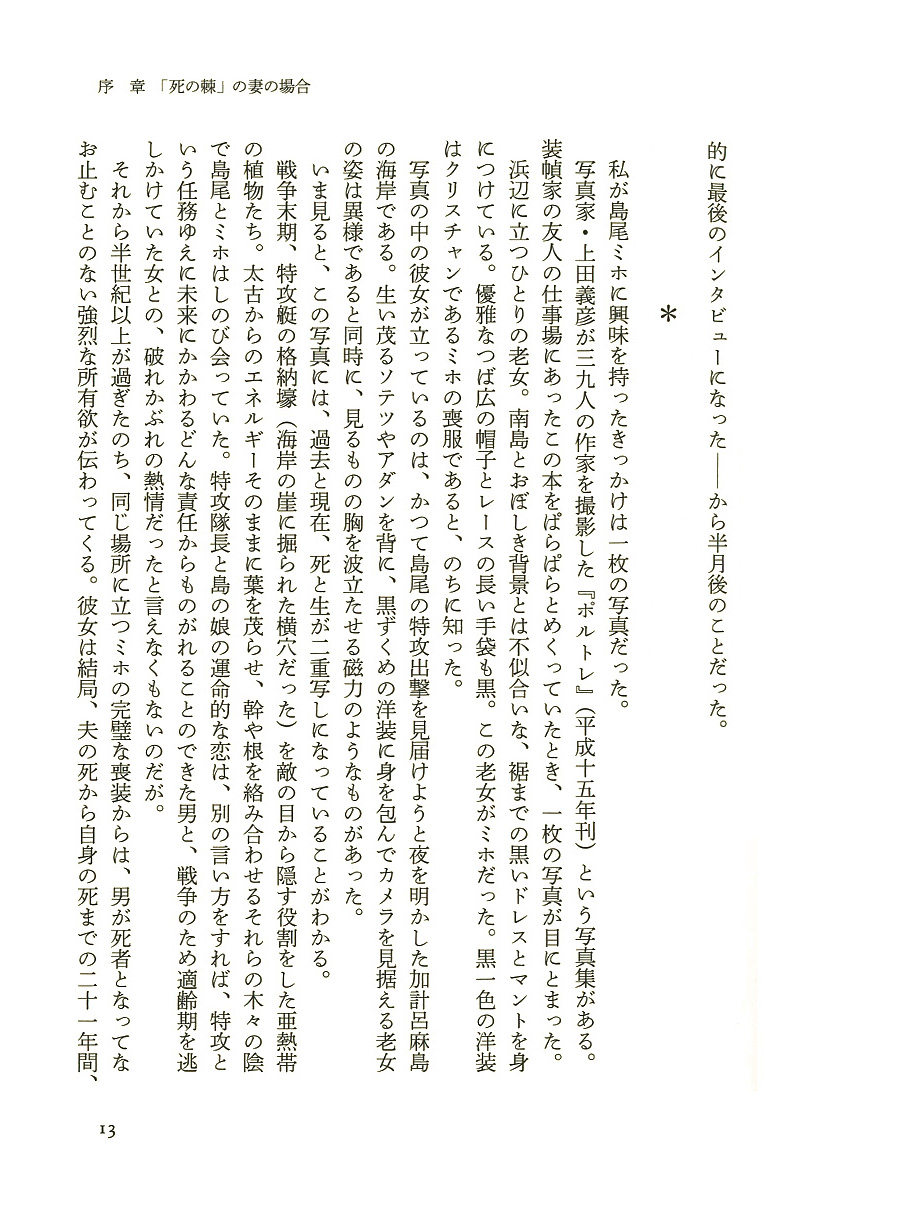 序　章　「死の棘」の妻の場合
的に最後のインタビューになった――から半月後のことだった。
＊
　私が島尾ミホに興味を持ったきっかけは一枚の写真だった。
　写真家・上田義彦が三九人の作家を撮影した『ポルトレ』（平成十五年刊）という写真集がある。
装幀家の友人の仕事場にあったこの本をぱらぱらとめくっていたとき、一枚の写真が目にとまった。
　浜辺に立つひとりの老女。南島とおぼしき背景とは不似合いな、裾までの黒いドレスとマントを身
につけている。優雅なつば広の帽子とレースの長い手袋も黒。この老女がミホだった。黒一色の洋装
はクリスチャンであるミホの喪服であると、のちに知った。
　写真の中の彼女が立っているのは、かつて島尾の特攻出撃を見届けようと夜を明かした加計呂麻島
の海岸である。生い茂るソテツやアダンを背に、黒ずくめの洋装に身を包んでカメラを見据える老女
の姿は異様であると同時に、見るものの胸を波立たせる磁力のようなものがあった。
　いま見ると、この写真には、過去と現在、死と生が二重写しになっていることがわかる。
　戦争末期、特攻艇の格納壕（海岸の崖に掘られた横穴だった）を敵の目から隠す役割をした亜熱帯
の植物たち。太古からのエネルギーそのままに葉を茂らせ、幹や根を絡み合わせるそれらの木々の陰
で島尾とミホはしのび会っていた。特攻隊長と島の娘の運命的な恋は、別の言い方をすれば、特攻と
いう任務ゆえに未来にかかわるどんな責任からものがれることのできた男と、戦争のため適齢期を逃
しかけていた女との、破れかぶれの熱情だったと言えなくもないのだが。
　それから半世紀以上が過ぎたのち、同じ場所に立つミホの完璧な喪装からは、男が死者となってな
お止むことのない強烈な所有欲が伝わってくる。彼女は結局、夫の死から自身の死までの二十一年間、
13